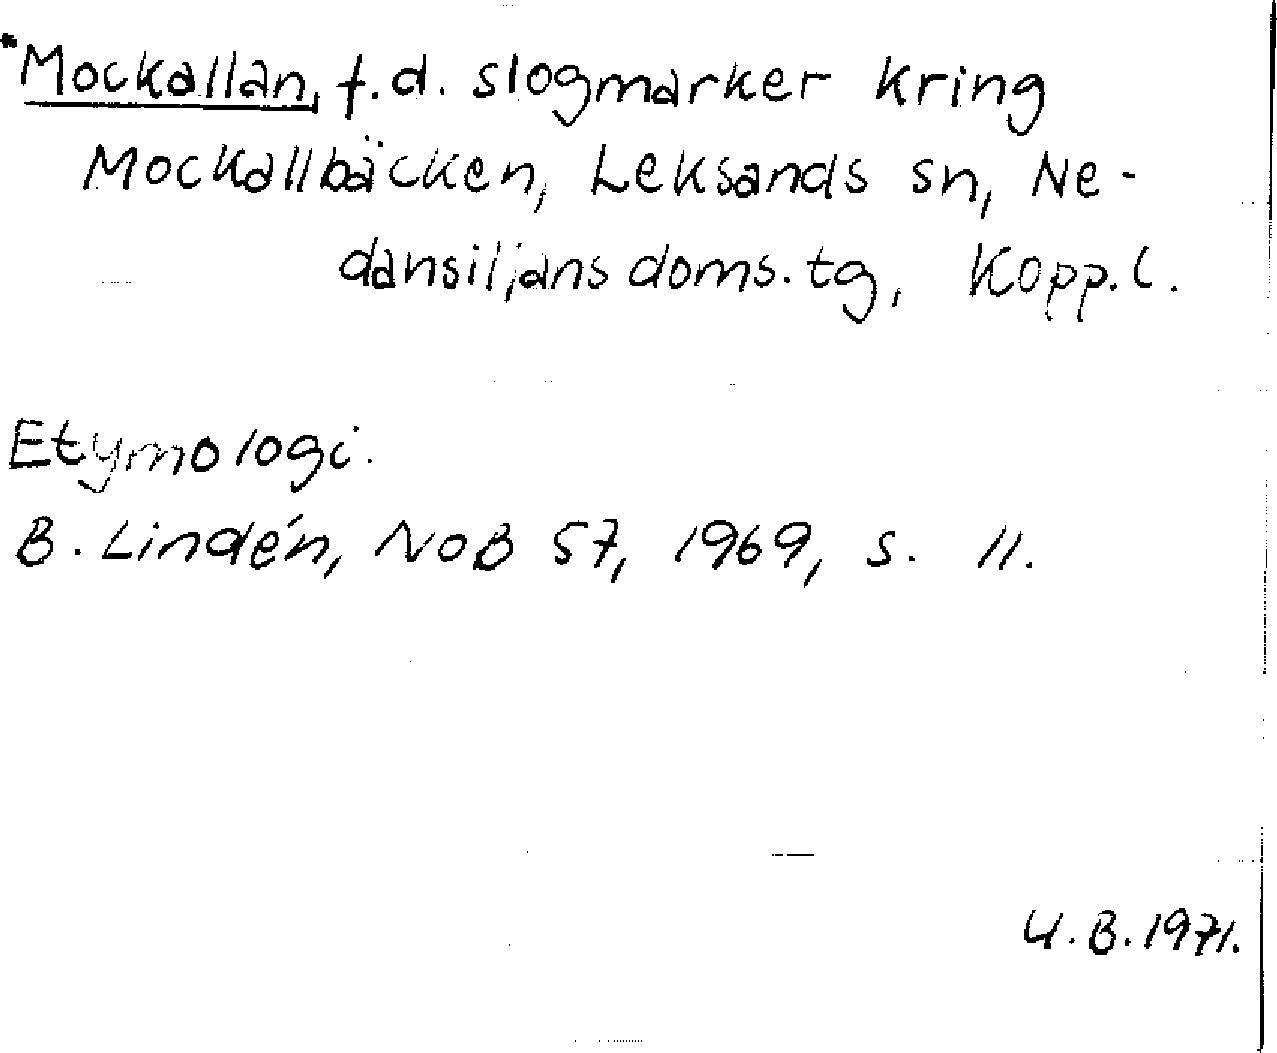 *Mockallan, f.d. slogmarker kring
Mockallbäcken, Leksands sn, Ne-
dansiljans doms.tg, Kopp.l.
Etymologi.
B. Lindén, NoB 57, 1969, s. 11.
U.B.1971.